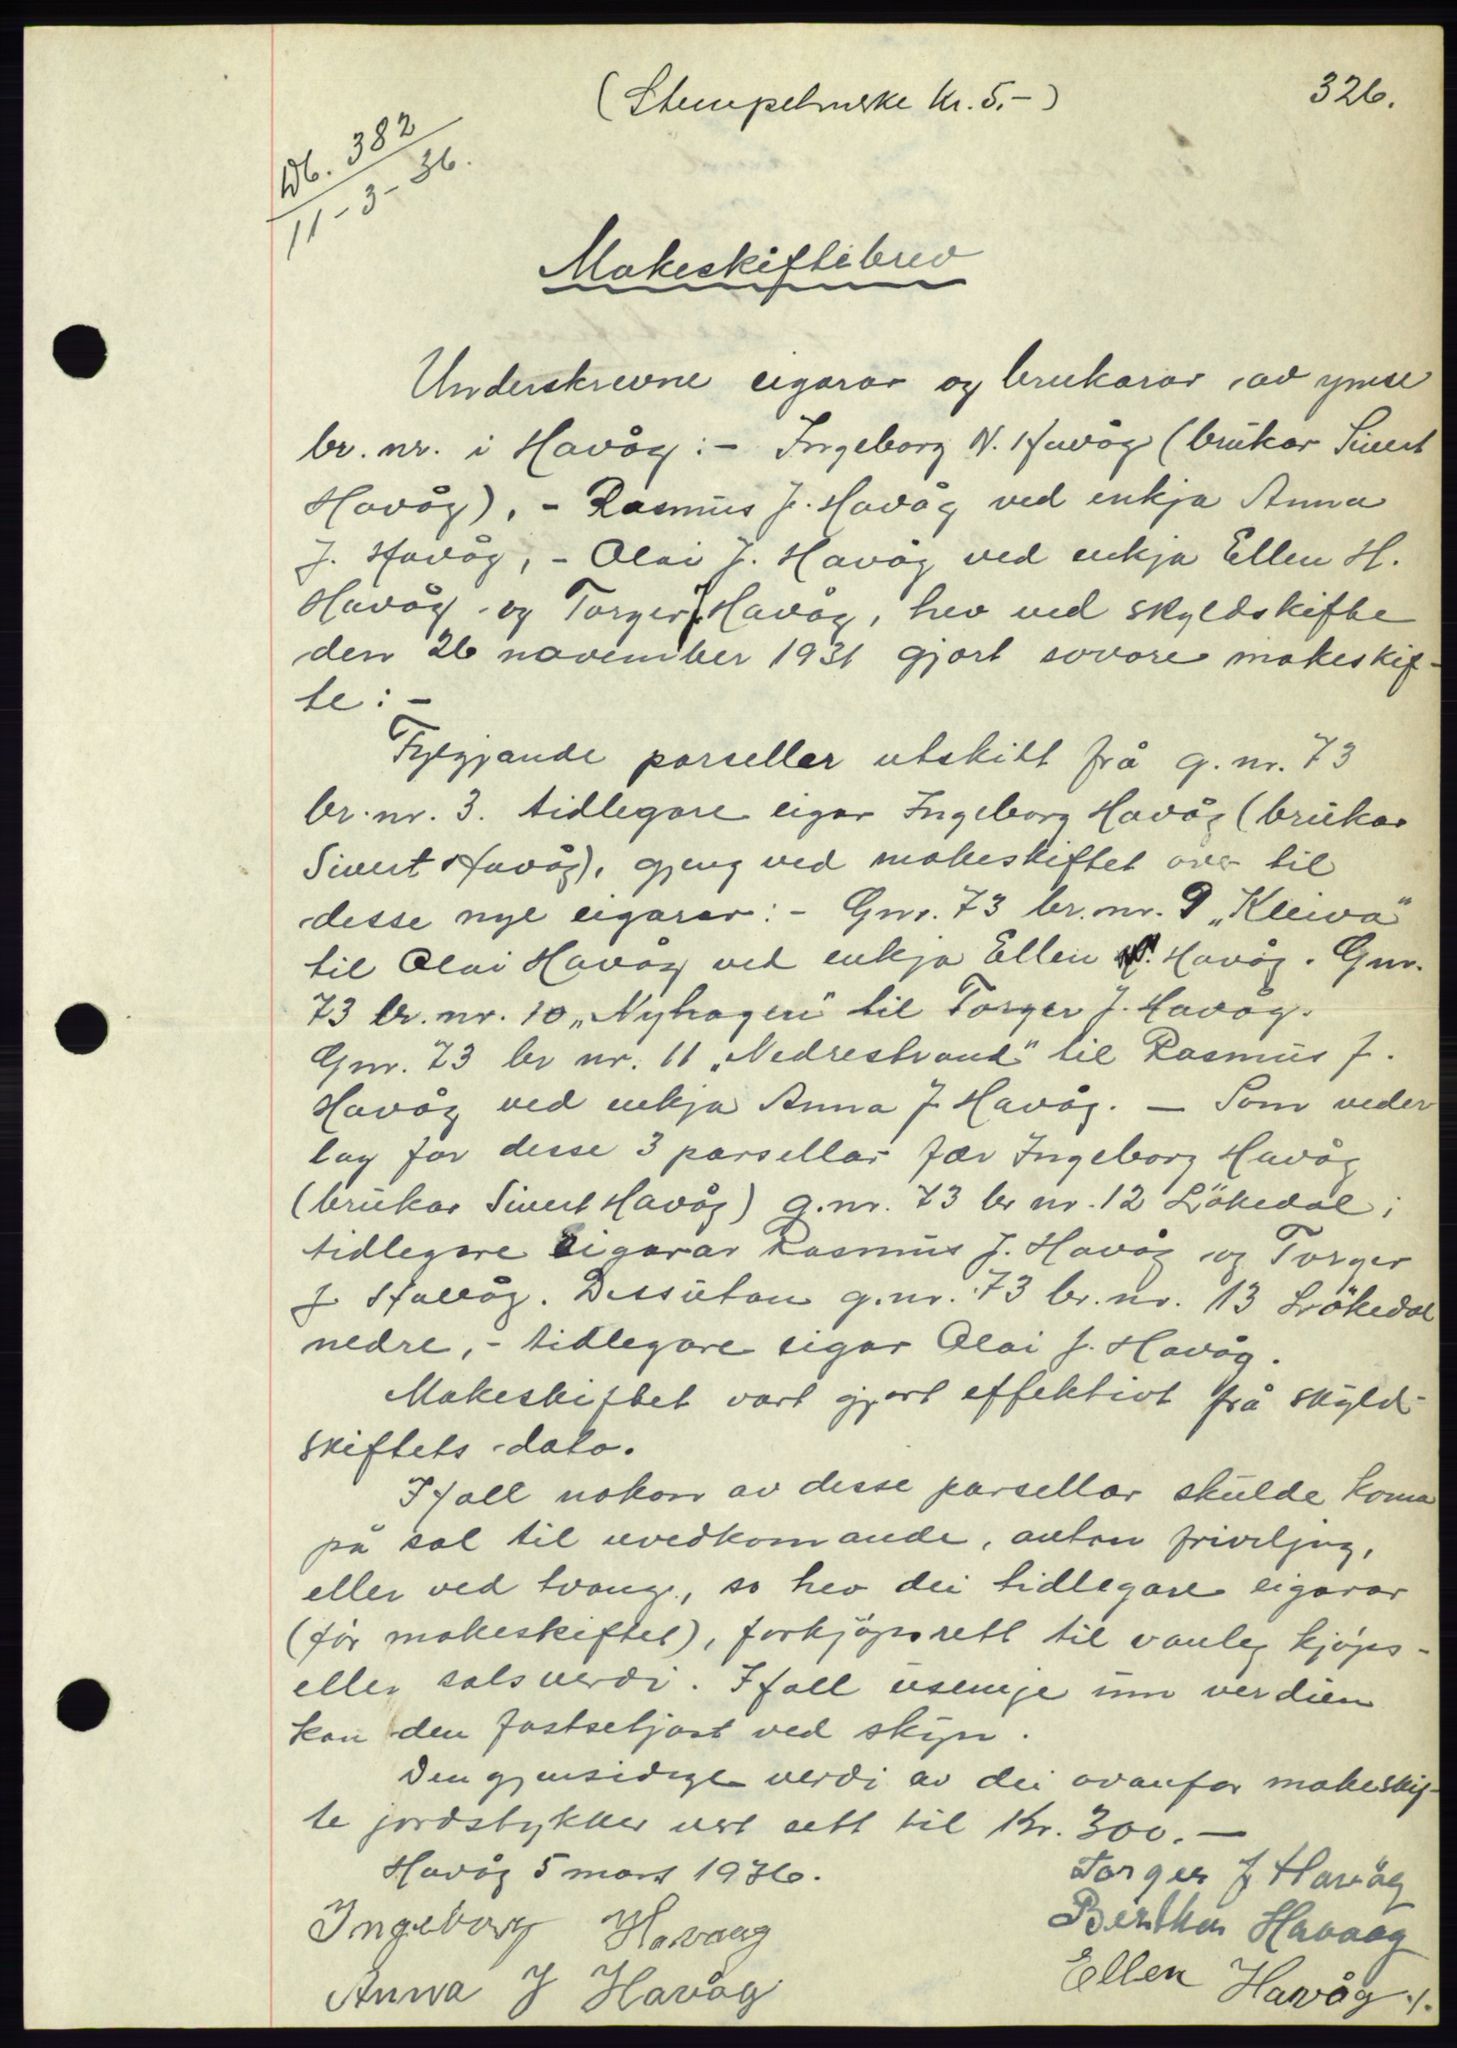 (Stempelmerke kr. 5.-)
326.
Db. 382
11-3-36.
Makeskiftebrev
Underskrevne eigarar og brukarar av ymse
br. nr. i Havåg: - Ingeborg N. Havåg (brukar Sivert
Havåg), - Rasmus J. Havåg ved enkja Anna
J. Havåg, - Olai J. Havåg ved enkja Ellen H.
Havåg og Torger J. Havåg, hev ved skyldskifte
den 26 november 1931 gjort sovore makeskif-
te: -
Fylgjande parseller utskilt frå g. nr. 73
br. nr. 3. tidlegare eigar Ingeborg Havåg (brukar
Sivert Havåg), gjeng ved makeskiftet over til
desse nye eigarar: - Gnr. 73 br. nr. 9 „Kleiva"
til Olai Havåg ved enkja Ellen H. Havåg. Gnr.
73 br. nr. 10 „Nyhagen" til Torger J. Havåg.
Gnr. 73 br nr. 11 „Nedrestrand" til Rasmus J.
Havåg ved enkja Anna J Havåg. — Som veder
lag for desse 3 parsellar fær Ingeborg Havåg
(brukar Sivert Havåg) g. nr. 73 br nr. 12 Lökedal;
tidlegare eigarar Rasmus J. Havåg og Torger
J Havåg. Dessutan g. nr. 73 br. nr. 13 Lökedal
nedre, - tidlegare eigar Olai J. Havåg.
Makeskiftet vart gjort effektivt frå skyld-
skiftets dato.
Ifall nokon av desse parsellar skulde koma
på sal til uvedkomande, anten friviljug,
eller ved tvang, so hev dei tidlegare eigarar
(för makeskiftet), forkjöpsrett til vanleg kjöps-
eller salsverdi. Ifall usemje um verdien
kan den fastsetjast ved skjyn.
Den gjensidige verdi av dei ovanfor makeskif-
te jordstykker vert sett til Kr. 300.—
Havåg 5 mars 1936.
Torger J Havåg
Ingeborg Havaag
Bertha Havaag
Anna J Havåg
Ellen Havåg ./.